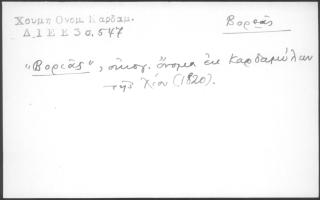 Χουμη Ονομ. Καρδαμ.
Δ Ι Ε Ε 3 σ. 547
Βορρᾶς
"Βοριᾶς", οἰκογ. ὄνομα ἐκ Καρδαμύλων
τῆς Χίου (1820).